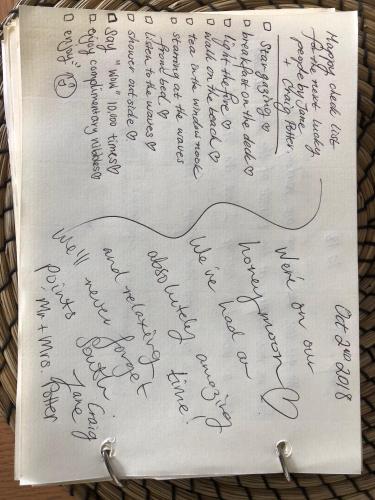 Happy check list
for the next lucky
people by Jane
+ Craig Potter.
Stargazing ♡
breakfast on the deck ♡
light the fire ♡
walk on the beach ♡
tea in the window nook
starring at the waves
from bed ♡
listen to the waves ♡
shower outside ♡
Say "wow" 10,000 times ♡
enjoy complimentary nibbles ♡
enjoy!
Oct 2nd 2018
We're on our
honeymoon ♡
We've had an
absolutely amazing
and relaxing time!
We'll never forget
South
points
Mr + Mrs. Potter
Jane Craig